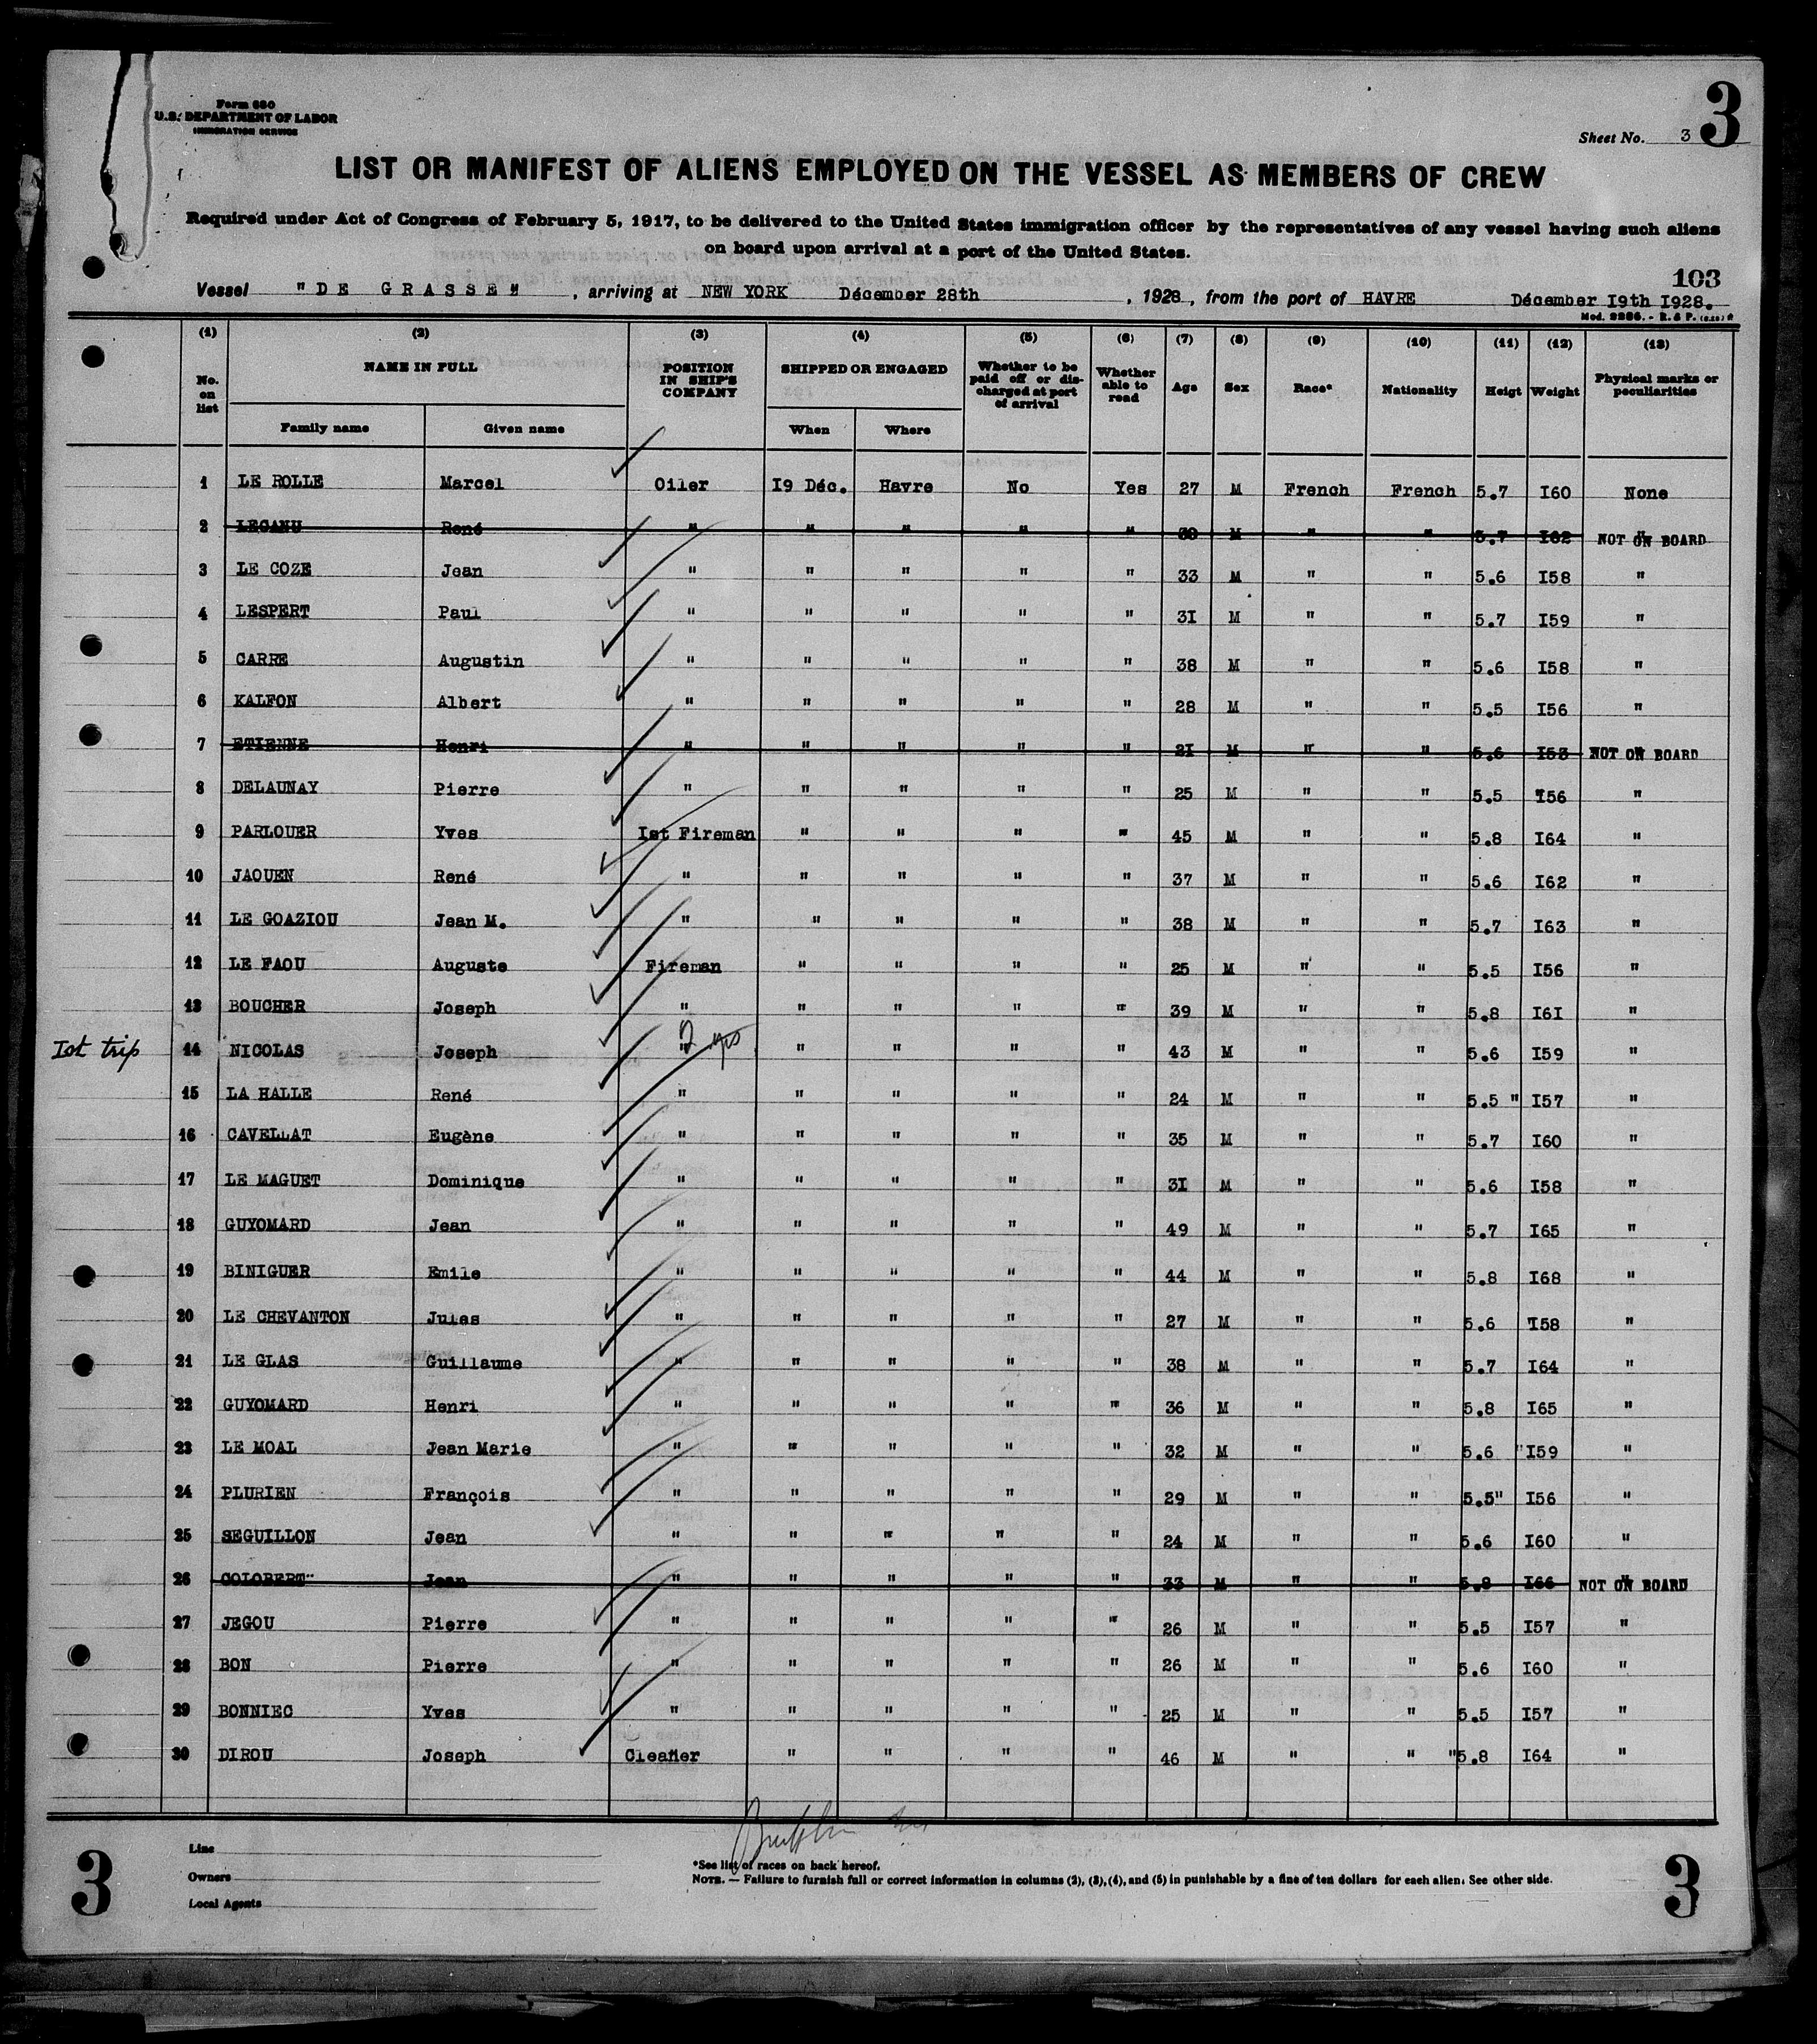 Form 680
U.S. DEPARTMENT OF LABOR
IMMIGRATION SERVICE
Sheet No. 3
3
LIST OR MANIFEST OF ALIENS EMPLOYED ON THE VESSEL AS MEMBERS OF CREW
Required under Act of Congress of February 5, 1917, to be delivered to the United States immigration officer by the representatives of any vessel having such aliens
on board upon arrival at a port of the United States.
103
Vessel "DE GRASSE", arriving at NEW YORK Décember 28th, 1928, from the port of HAVRE Décember I9th I928.
Mod. 2286. - R. & P.
(1) (2) (3) (4) (5) (6) (7) (8) (9) (10) (11) (12) (13)
No. on list NAME IN FULL POSITION IN SHIP'S COMPANY SHIPPED OR ENGAGED Whether to be paid off or discharged at port of arrival Whether able to read Age Sex Race* Nationality Heigt Weight Physical marks or peculiarities
Family name Given name When Where
1 LE ROLLE Marcel Oiler I9 Déc. Havre No Yes 27 M French French 5.7 I60 None
2 LECANU René " " " " " 39 M " " 5.7 I62 " NOT ON BOARD
3 LE COZE Jean " " " " " 33 M " " 5.6 I58 "
4 LESPERT Paul " " " " " 3I M " " 5.7 I59 "
5 CARRE Augustin " " " " " 38 M " " 5.6 I58 "
6 KALFON Albert " " " " " 28 M " " 5.5 I56 "
7 ETIENNE Henri " " " " " 2I M " " 5.6 I53 " NOT ON BOARD
8 DELAUNAY Pierre " " " " " 25 M " " 5.5 "I56 "
9 PARLOUER Yves Ist Fireman " " " " 45 M " " 5.8 I64 "
10 JAOUEN René " " " " " 37 M " " 5.6 I62 "
11 LE GOAZIOU Jean M. " " " " " 38 M " " 5.7 I63 "
12 LE FAOU Auguste Fireman " " " " 25 M " " 5.5 I56 "
13 BOUCHER Joseph " " " " " 39 M " " 5.8 I6I "
Ist trip 14 NICOLAS Joseph " 2 yrs " " " " 43 M " " 5.6 I59 "
15 LA HALLE René " " " " " 24 M " " 5.5 " I57 "
16 CAVELLAT Eugène " " " " " 35 M " " 5.7 I60 "
17 LE MAGUET Dominique " " " " " 3I M " " 5.6 I58 "
18 GUYOMARD Jean " " " " " 49 M " " 5.7 I65 "
19 BINIGUER Emile " " " " " 44 M " " 5.8 I68 "
20 LE CHEVANTON Jules " " " " " 27 M " " 5.6 "I58 "
21 LE GLAS Guillaume " " " " " 38 M " " 5.7 I64 "
22 GUYOMARD Henri " " " " " 36 M " " 5.8 I65 "
23 LE MOAL Jean Marie " " " " " 32 M " " 5.6 "I59 "
24 PLURIEN François " " " " " 29 M " " 5.5" I56 "
25 SEGUILLON Jean " " " " " 24 M " " 5.6 I60 "
26 COLOBERT" Jean " " " " " 33 M " " 5.8 I66 " NOT ON BOARD
27 JEGOU Pierre " " " " " 26 M " " 5.5 I57 "
28 BON Pierre " " " " " 26 M " " 5.6 I60 "
29 BONNIEC Yves " " " " " 25 M " " 5.5 I57 "
30 DIROU Joseph Cleaner " " " " 46 M " " "5.8 I64 "
3
Line
Owners
Local Agents
*See list of races on back hereof.
NOTE. — Failure to furnish full or correct information in columns (2), (3), (4), and (5) in punishable by a fine of ten dollars for each alien. See other side.
3